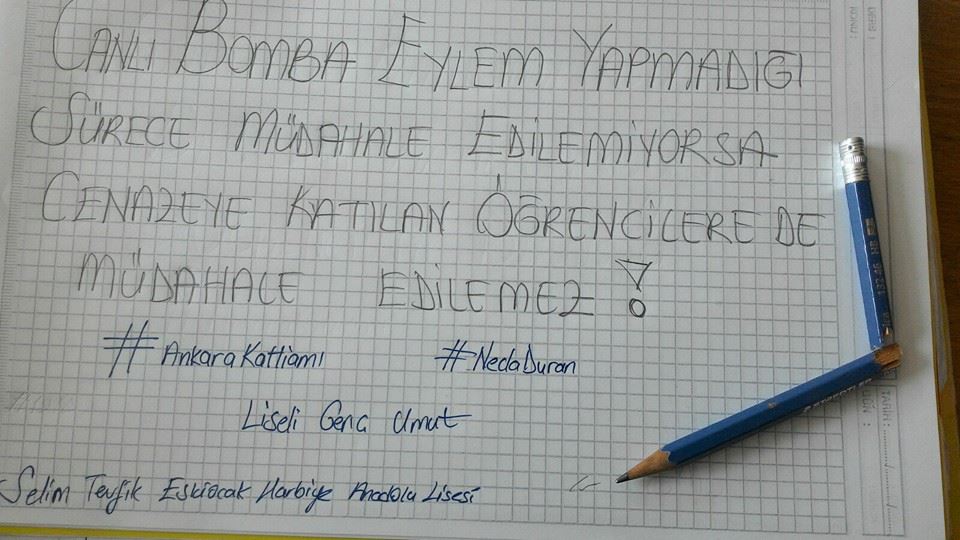 CANLI BOMBA EYLEM YAPMADIĞI
SÜRECE MÜDAHALE EDİLEMİYORSA
CENAZEYE KATILAN ÖĞRENCİLERE DE
MÜDAHALE EDİLEMEZ !
#AnkaraKatliamı #NedaDuran
Liseli Genç Umut
Selim Tevfik Eskiocak Harbiye Anadolu Lisesi
TARİH :